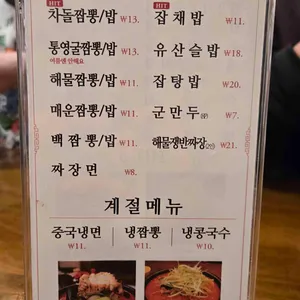 HIT
차돌짬뽕/밥 ₩13.
HIT
잡채밥 ₩11.
통영굴짬뽕/밥 ₩13.
여름엔 안해요
유산슬밥 ₩18.
해물짬뽕/밥 ₩11.
잡탕밥 ₩20.
매운짬뽕/밥 ₩11.
군만두 ₩7.
백짬뽕/밥 ₩11.
해물쟁반짜장(2인) ₩21.
짜장면 ₩8.
계절메뉴
중국냉면 ₩11.
냉짬뽕 ₩11.
냉콩국수 ₩10.